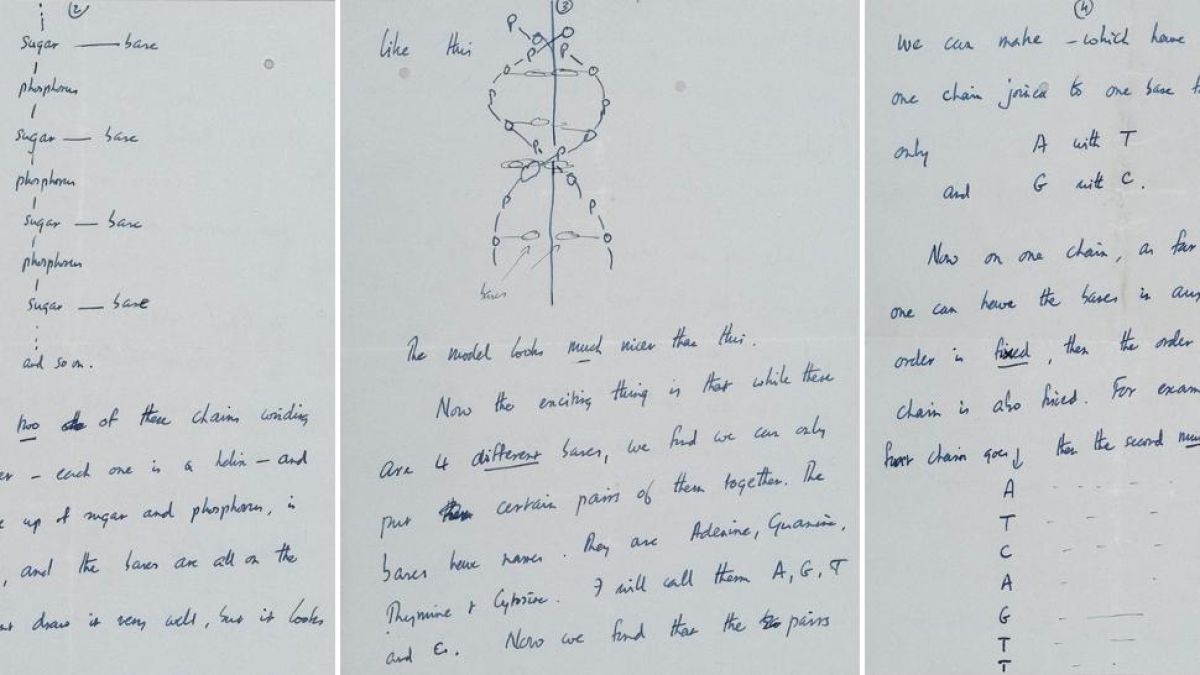 2
sugar — base
phosphorus
sugar — base
phosphorus
sugar — base
phosphorus
sugar — base
and so on.
two of these chains winding
er – each one is a helix – and
e up of sugar and phosphorus, is
, and the bases are all on the
draw it very well, but it looks
3
like this
P
P
P
P
P
P
P
P
P
bases
The model looks much nicer than this.
Now the exciting thing is that while there
are 4 different bases, we find we can only
put certain pairs of them together. The
bases have names. They are Adenine, Guanine,
Thymine & Cytosine. I will call them A, G, T
and C. Now we find that the pairs
4
We can make – which have
one chain joined to one base f
only A with T
and G with C.
Now on one chain, as far
one can have the bases in any
order is fixed, then the order
chain is also fixed. For exam
first chain goes ↓ then the second mu
A - - - -
T - - -
C - - -
A - -
G - —
T - —
T - -